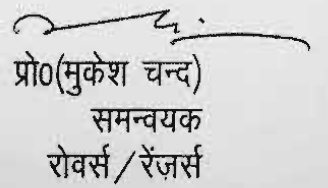 प्रो0(मुकेश चन्द)
समन्वयक
रोवर्स / रेंज़र्स